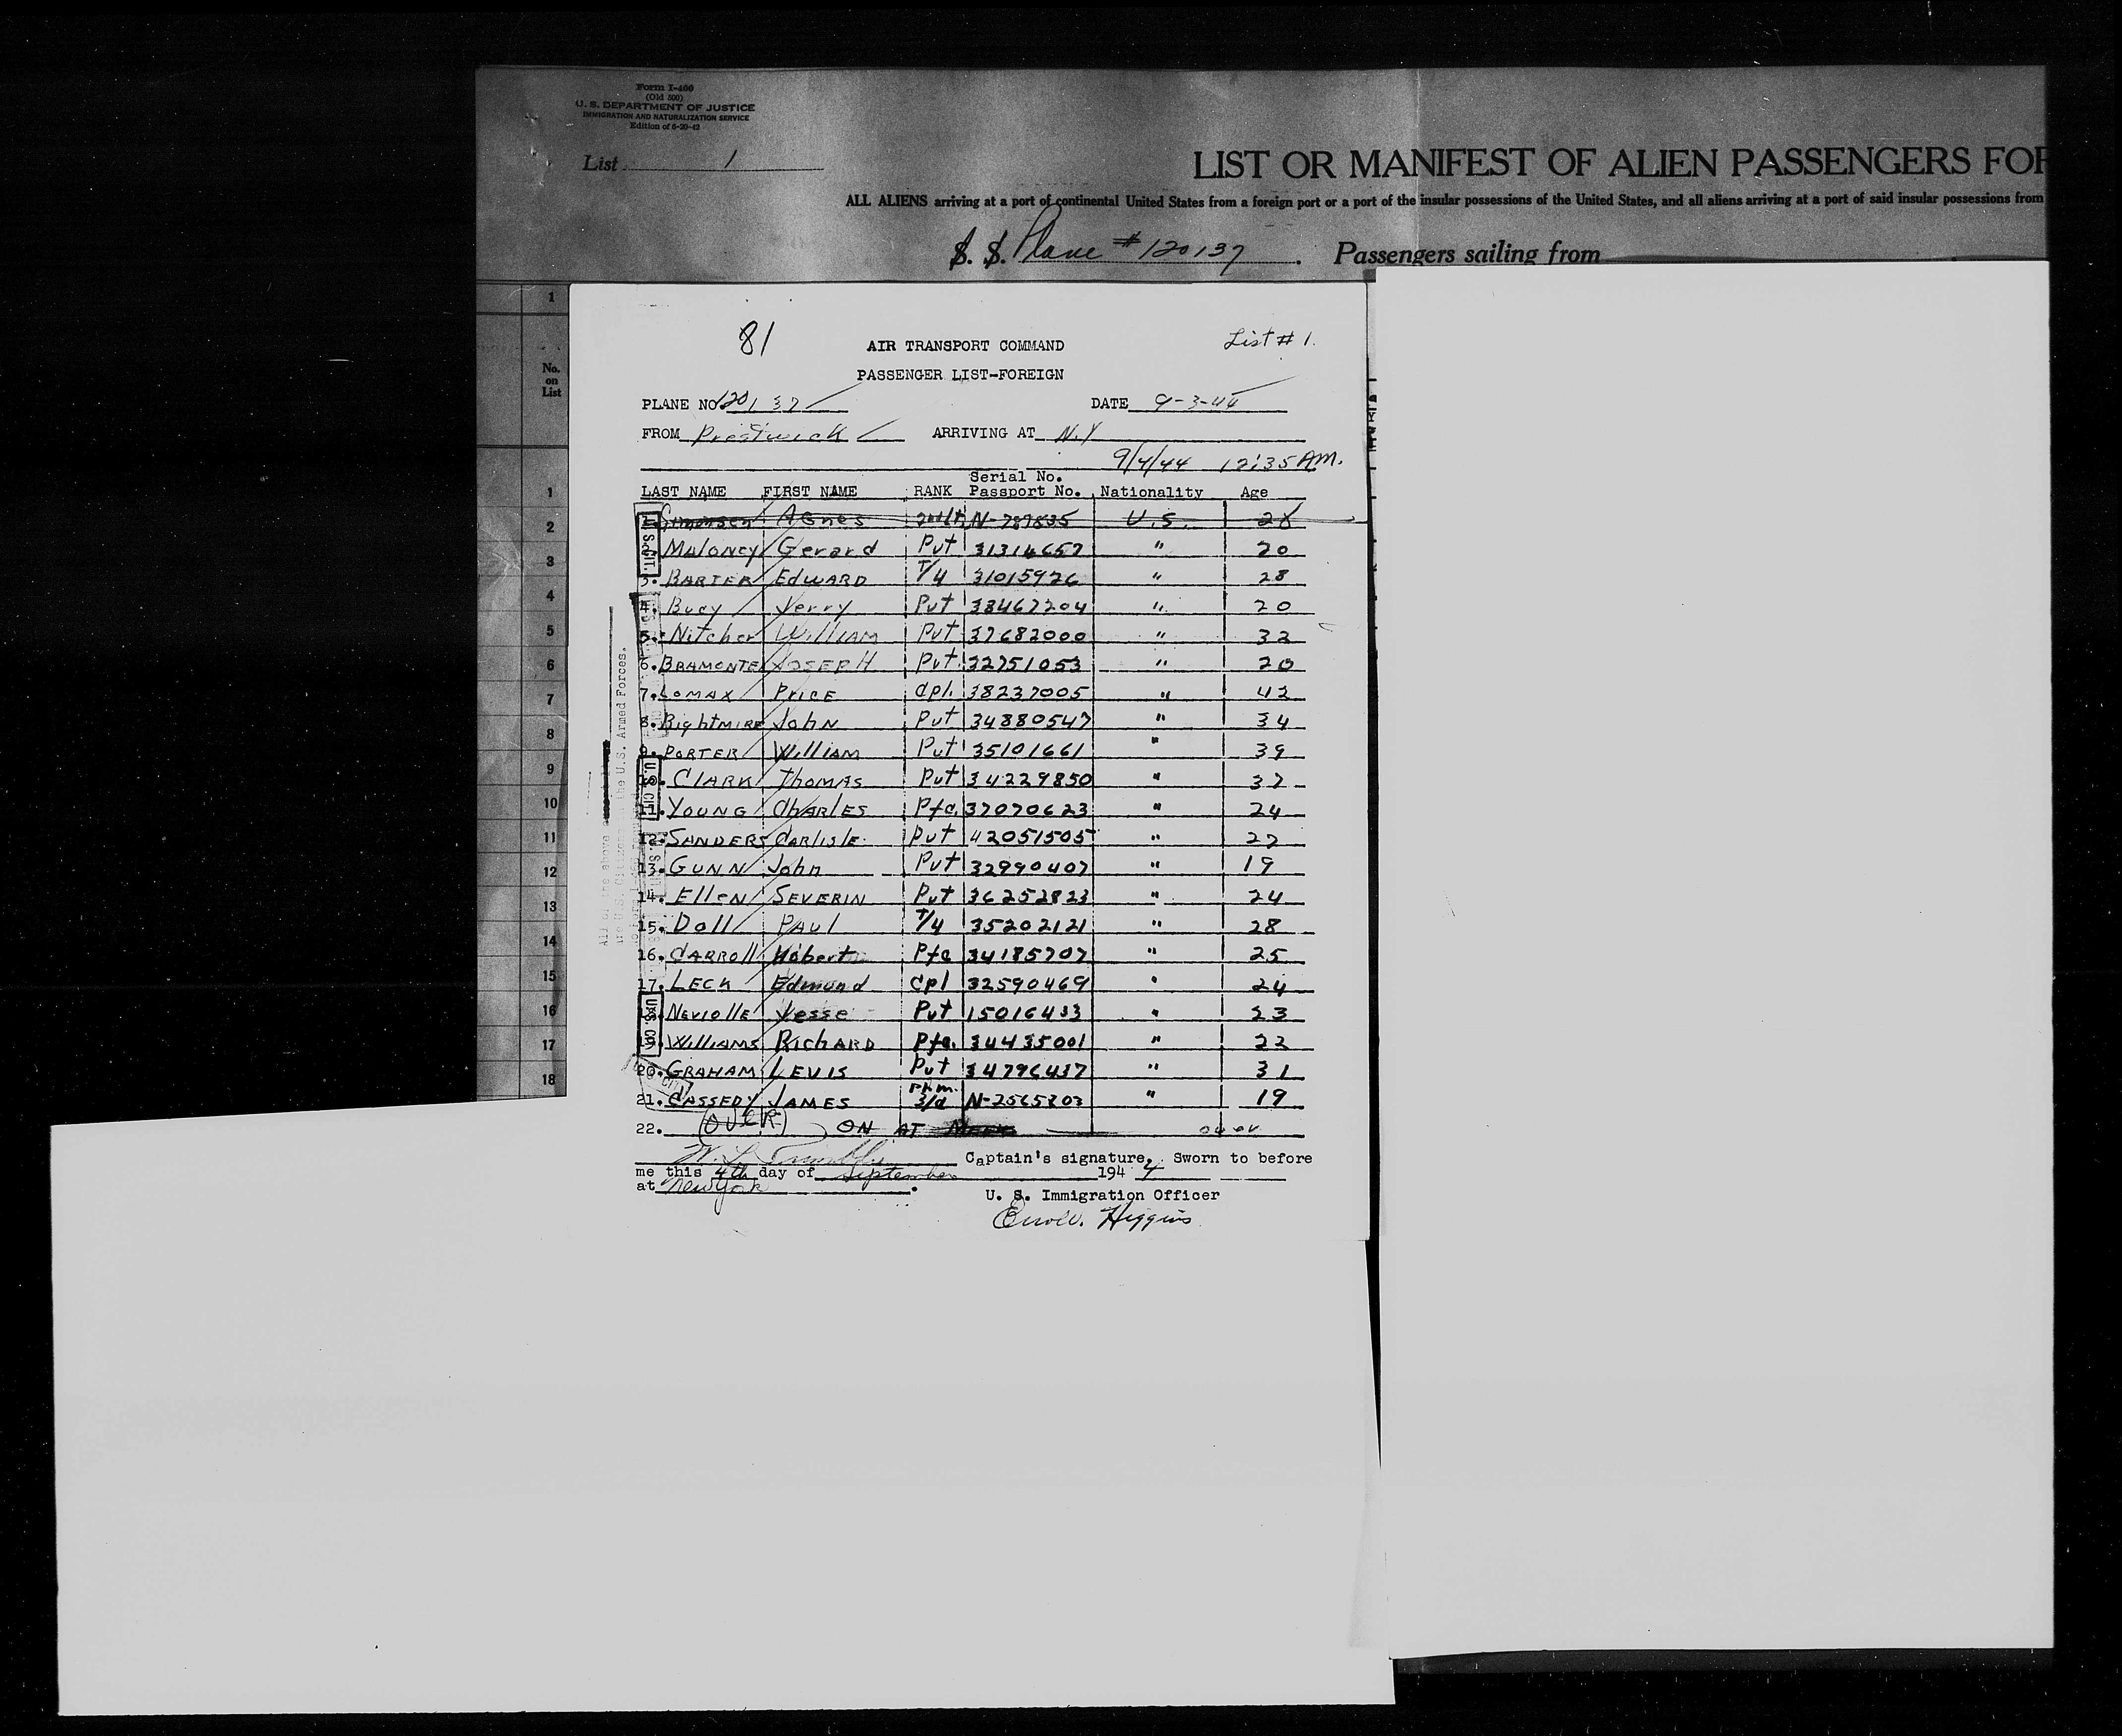 Form I-400
(Old 500)
U. S. DEPARTMENT OF JUSTICE
IMMIGRATION AND NATURALIZATION SERVICE
Edition of 6-20-42
List 1
LIST OR MANIFEST OF ALIEN PASSENGERS FOR
ALL ALIENS arriving at a port of continental United States from a foreign port or a port of the insular possessions of the United States, and all aliens arriving at a port of said insular possessions from
S. S. Plane # 120137 . Passengers sailing from
1
No. on List
1
2
3
4
5
6
7
8
9
10
11
12
13
14
15
16
17
18
81
List # 1.
AIR TRANSPORT COMMAND
PASSENGER LIST-FOREIGN
PLANE NO 120137 DATE 9-3-44
FROM Prestwick ARRIVING AT N.Y
9/4/44 12:35 AM.
LAST NAME FIRST NAME RANK Serial No. Passport No. Nationality Age
Simonsen Agnes 2nd Lt N-787835 U.S. 28
Maloney Gerard Pvt 31314657 " 20
3. BARTER EDWARD T/4 31015926 " 28
4. Bucy Jerry Pvt 38467204 " 20
5. Nitcher William Pvt 37682000 " 32
6. BRAMONTE JOSEPH Pvt. 32751053 " 20
7. LOMAX PRICE Cpl. 38237005 " 42
8. RightMIRE John Pvt 34880547 " 34
9. PORTER William Pvt 35101661 " 39
10. CLARK THOMAS Pvt 34229850 " 37
11. YOUNG CHARLES Pfc. 37070623 " 24
12. SANDERS Carlisle Pvt 42051505 " 27
13. GUNN John Pvt 32990407 " 19
14. EllEN SEVERIN Pvt 36252823 " 24
15. Doll PAUL T/4 35202121 " 28
16. CARROll Hobert Pfc 34185707 " 25
17. LECK Edmund Cpl 32590469 " 24
NEVIOllE Jesse Pvt 15016433 " 23
WilliAMS RICHARD Pfc. 34435001 " 22
20. GRAHAM LEVIS Pvt 34796437 " 31
21. CASSEDY JAMES PhM. 3/c N-2565803 " 19
22. (OVER) ON AT
Captain's signature. Sworn to before
me this 4th day of September 1944
at New York .
U. S. Immigration Officer
Higgins
U.S. CIT.
U.S. CIT.
U.S. CIT.
All of the above
are U.S. Citizens in the U.S. Armed Forces.